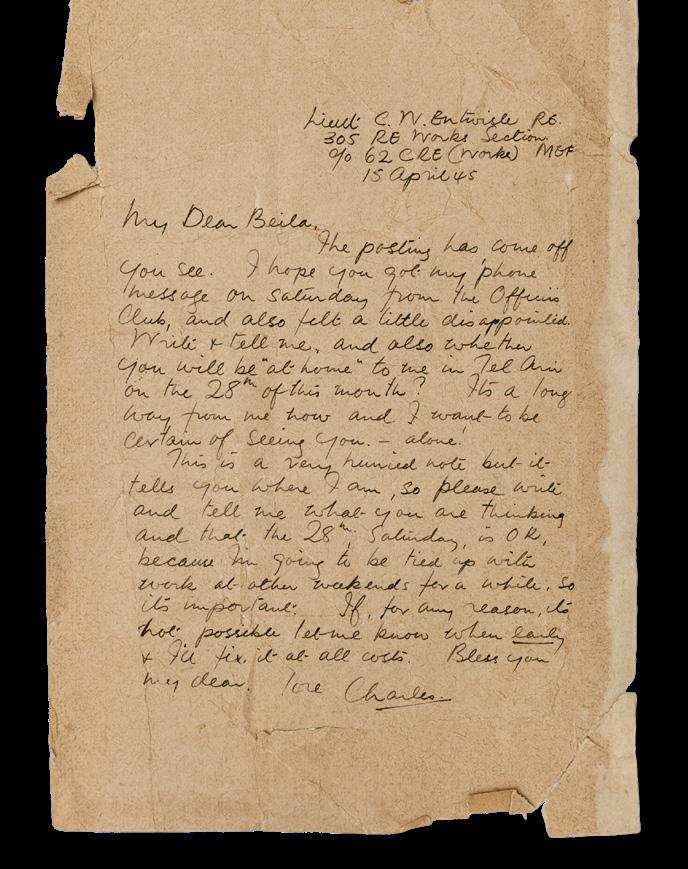 Lieut. C. W. Entwisle RE.
305 RE Works Section
c/o 62 CRE (Works) MEF
15 April 45
My Dear Beila,
The posting has come off
you see. I hope you got my phone
message on Saturday from the Officers
Club, and also felt a little disappointed.
Write & tell me, and also whether
you will be "at home" to me in Tel Aviv
on the 28th of this month? Its a long
way from me now and I want to be
certain of seeing you. – alone!
This is a very hurried note but it
tells you where I am, so please write
and tell me what you are thinking
and that the 28th, Saturday, is OK,
because I'm going to be tied up with
work at other weekends for a while, so
its important. If, for any reason, its
not possible let me know when early
& I'll fix it at all costs. Bless you
my dear. love Charles.